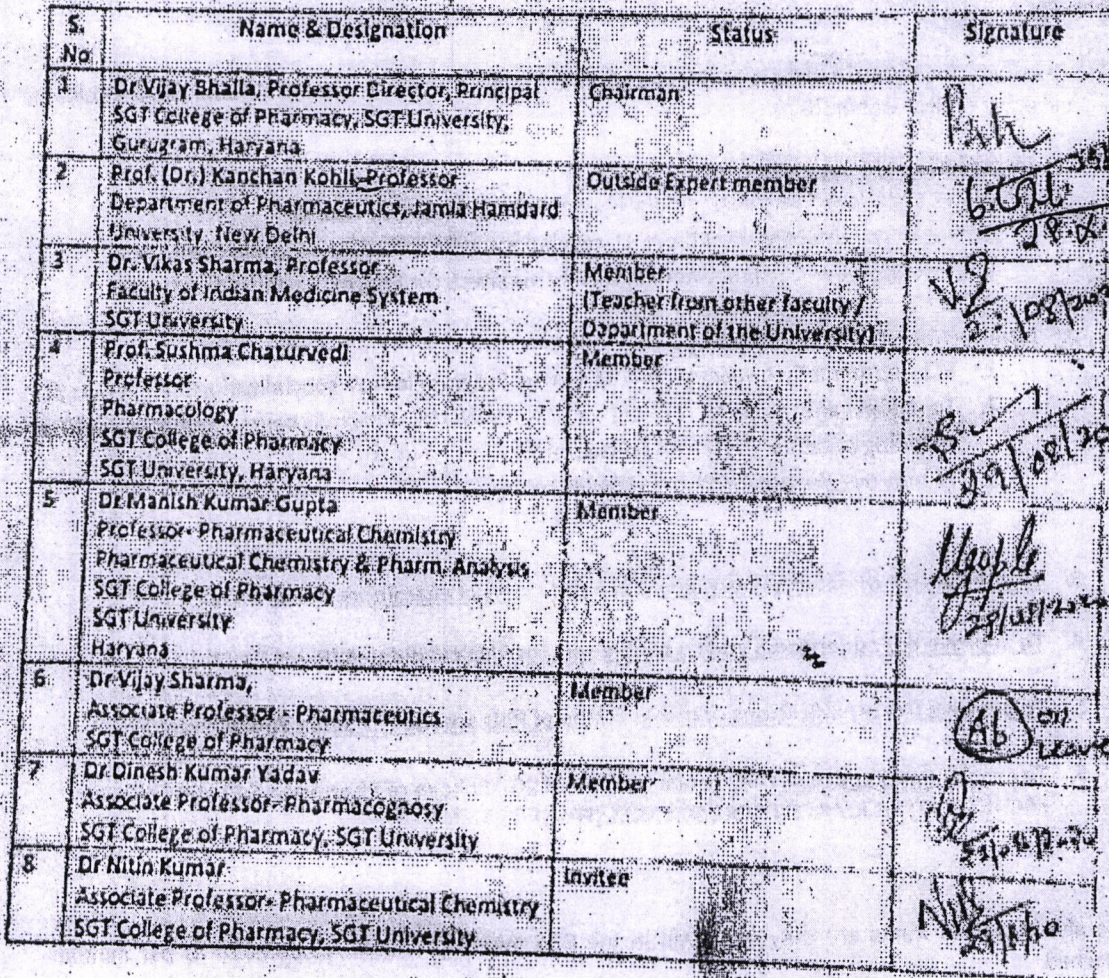 S. No Name & Designation Status Signature
1 Dr Vijay Bhalla, Professor Director, Principal Chairman
SGT College of Pharmacy, SGT University,
Gurugram, Haryana
2 Prof. (Dr.) Kanchan Kohli, Professor Outside Expert member
Department of Pharmaceutics, Jamia Hamdard
University, New Delhi
3 Dr. Vikas Sharma, Professor Member
Faculty of Indian Medicine System (Teacher from other faculty /
SGT University Department of the University)
4 Prof. Sushma Chaturvedi Member
Professor
Pharmacology
SGT College of Pharmacy
SGT University, Haryana
29/08/20
5 Dr Manish Kumar Gupta Member
Professor- Pharmaceutical Chemistry
Pharmaceutical Chemistry & Pharm. Analysis
SGT College of Pharmacy
SGT University
Haryana
6 Dr Vijay Sharma, Member
Associate Professor - Pharmaceutics Ab on
SGT College of Pharmacy Leave
7 Dr Dinesh Kumar Yadav Member
Associate Professor- Pharmacognosy
SGT College of Pharmacy, SGT University
8 Dr Nitin Kumar Invitee
Associate Professor- Pharmaceutical Chemistry
SGT College of Pharmacy, SGT University